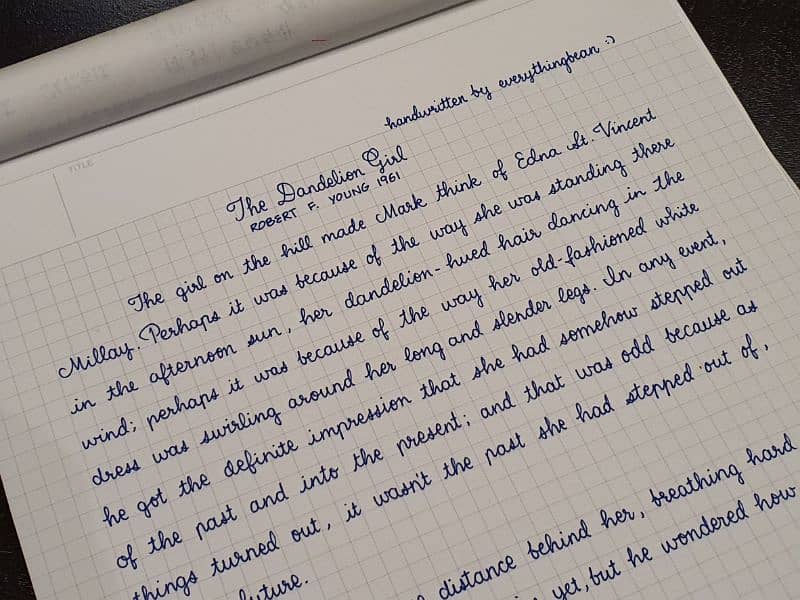 TITLE
handwritten by everythingbean :)
The Dandelion Girl
ROBERT F. YOUNG 1961
The girl on the hill made Mark think of Edna St. Vincent
Millay. Perhaps it was because of the way she was standing there
in the afternoon sun, her dandelion-hued hair dancing in the
wind; perhaps it was because of the way her old-fashioned white
dress was swirling around her long and slender legs. In any event,
he got the definite impression that she had somehow stepped out
of the past and into the present; and that was odd because as
things turned out, it wasn't the past she had stepped out of,
future.
distance behind her, breathing hard
yet, but he wondered how